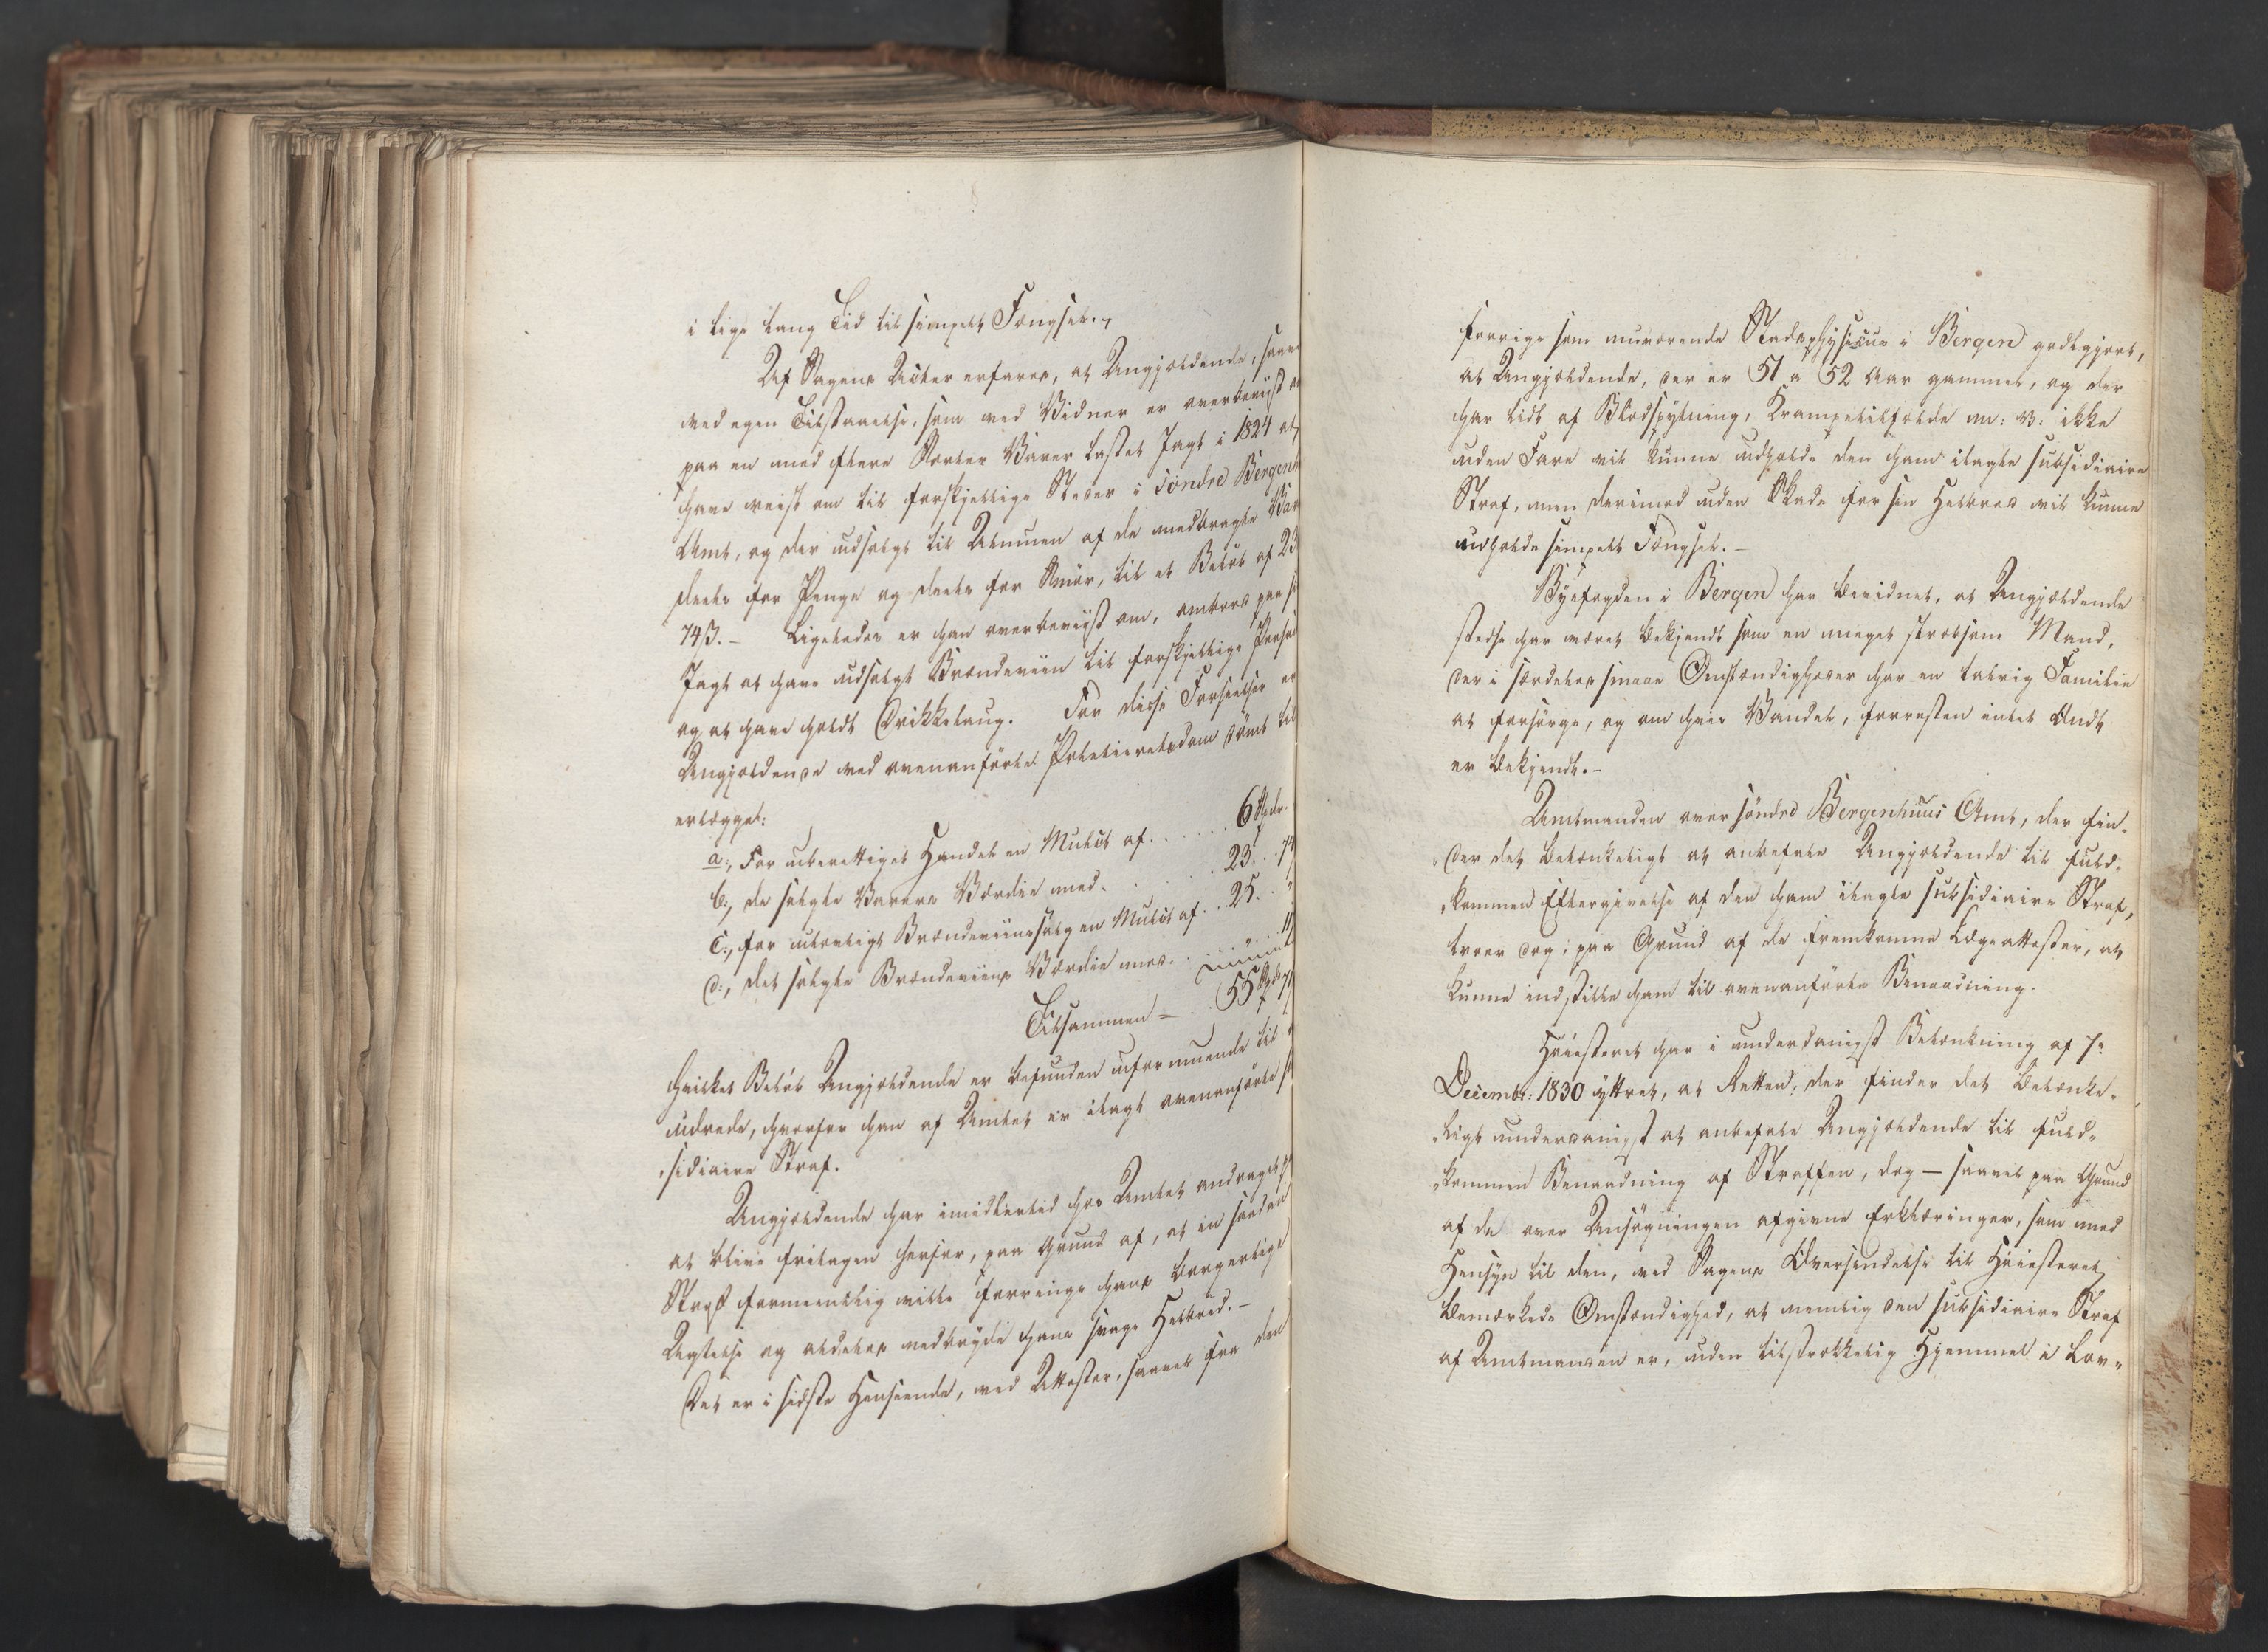 i lige lang Tid til simpelt Fængsel.,
Af Sagens Acter erfares, at Angjældende, saavel
ved egen Tilstaaelse, som ved Vidner er overbeviist
paa en med flere Sorter Varer lastet Jagt i 1824 at
have reist om til forskjellige Steder i Söndre Bergenh
Amt, og der udsolgt til Almuen af de medbragte Var
deels for Penge og deels for Smör, til et Belöb af 23
74ß. – Ligeledes er han overbeviist om, ombord paa si
Jagt at have udsolgt Brændeviin til forskjellige Perso
og at have holdt Drikkelaug. For disse Forseelser er
Angjældende ved ovenanførte Politieretsdom dömt til
erlægge:
a:, For uberettiget Handel en Mulct af . . . . . . 6 Spdr.
b:, de solgte Varers Værdie med . . . . . 23. . 74
c:, for ulovligt Brændeviinssalg en Mulct af . . 25. . "
d:, det solgte Brændeviins Værdie med . . " . . 11
Tilsammen = . . 55 Spdr 7
hvilket Belöb Angjældende er befunden uformuende til
udrede, hvorfor han af Amtet er ilagt ovenanførte
„sidiaire Straf.
Angjældende har imidlertid hos Amtet andraget
at blive fritagen herfor, paa Grund af, at en saadan
Straf formeentlig vilde forringe hans borgerlige
Agtelse og aldeles nedbryde hans svage Helbred. –
Det er i sidste Henseende, ved Attester, saavel fra den
forrige som nuværende Stadsphysicus i Bergen godtgjort,
at Angjældende, der er 51 a 52 Aar gammel, og der
har lidt af Blodspytning, Krampetilfælde m: v: ikke
uden Fare vil kunne udholde den ham ilagte subsidiaire
Straf, men derimod uden Skade for sin Helbred vil kunne
udholde simpelt Fængsel. –
Byefogden i Bergen har bevidnet, at Angjældende
stedse har været bekjendt som en meget stræbsom Mand,
der i særdeles smaae Omstændigheder har en talrig Familie
at forsörge, og om hvis Vandel, forresten intet Ondt
er bekjendt. –
Amtmanden over söndre Bergenhuus Amt, der fin„
„der det betænkeligt at anbefale Angjældende til fuld„
„kommen Eftergivelse af den ham ilagte subsidiaire Straf,
troer dog, paa Grund af de fremkomne Lægeattester, at
kunne indstille ham til ovenanførte Benaadning.
Höiesteret har i underdanigst Betænkning af 7e
Decembr: 1830 yttret, at Retten, der finder det betænke„
„ligt underdanigst at anbefale Angjældende til fuld„
„kommen Benaadning af Straffen, dog – saavel paa Grund
af de over Ansögningen afgivne Erklæringer, som med
Hensyn til den, ved Sagens Oversendelse til Höiesteret
bemærkede Omstændighed, at nemlig den subsidiaire Straf
af Amtmanden er, uden tilstrækkelig Hjemmel i Lov„